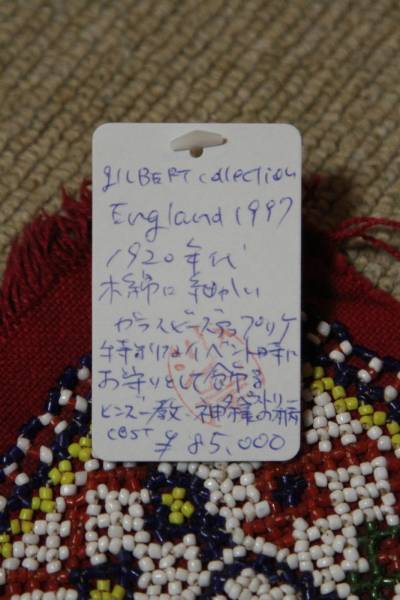 GILBERT collection
England 1997
1920年代
木綿に細かい
ガラスビーズアップリケ
特別なイベント時に
お守りとして飾る
ヒンズー教 神様の柄
cost ¥85,000